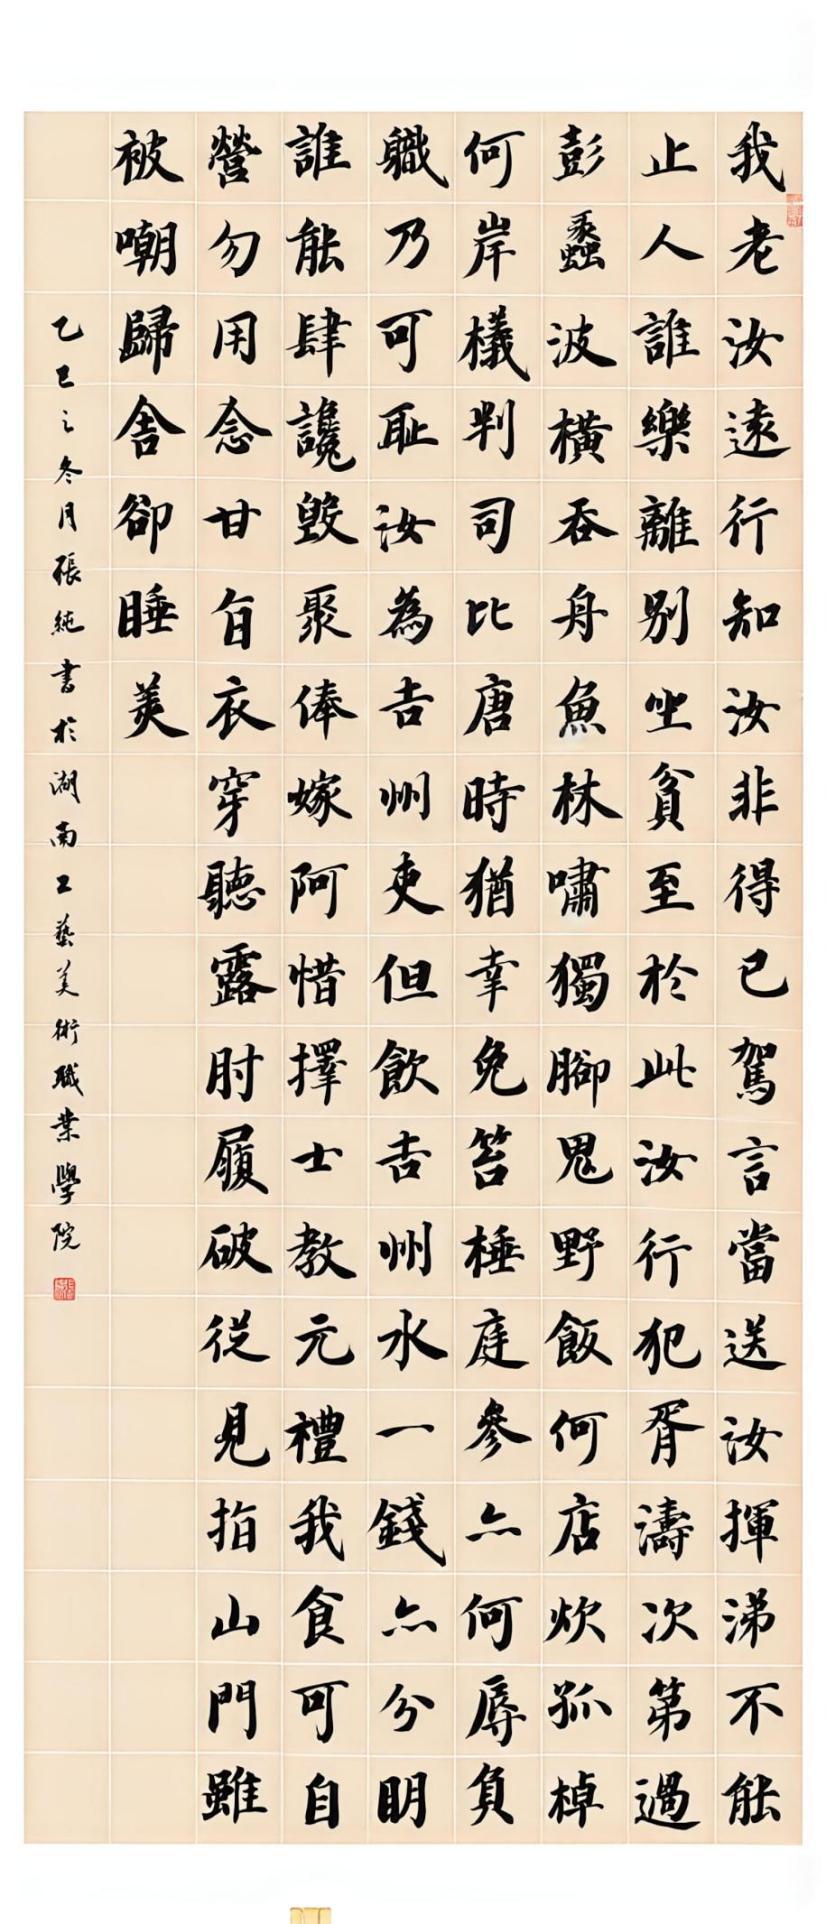 我老汝遠行知汝非得已駕言當送汝揮涕不能
止人誰樂離別坐貧至於此汝行犯胥濤次第過
彭蠡波橫吞舟魚林嘯獨腳鬼野飯何店炊孤棹
何岸檥判司比唐時猶幸免笞棰庭參亦何辱負
職乃可恥汝為吉州吏但飲吉州水一錢亦分明
誰能肆讒毀聚俸嫁阿惜擇士教元禮我食可自
營勿用念甘旨衣穿聽露肘履破從見指山門雖
被嘲歸舍卻睡美
乙巳之冬月張純書於湖南工藝美術職業學院